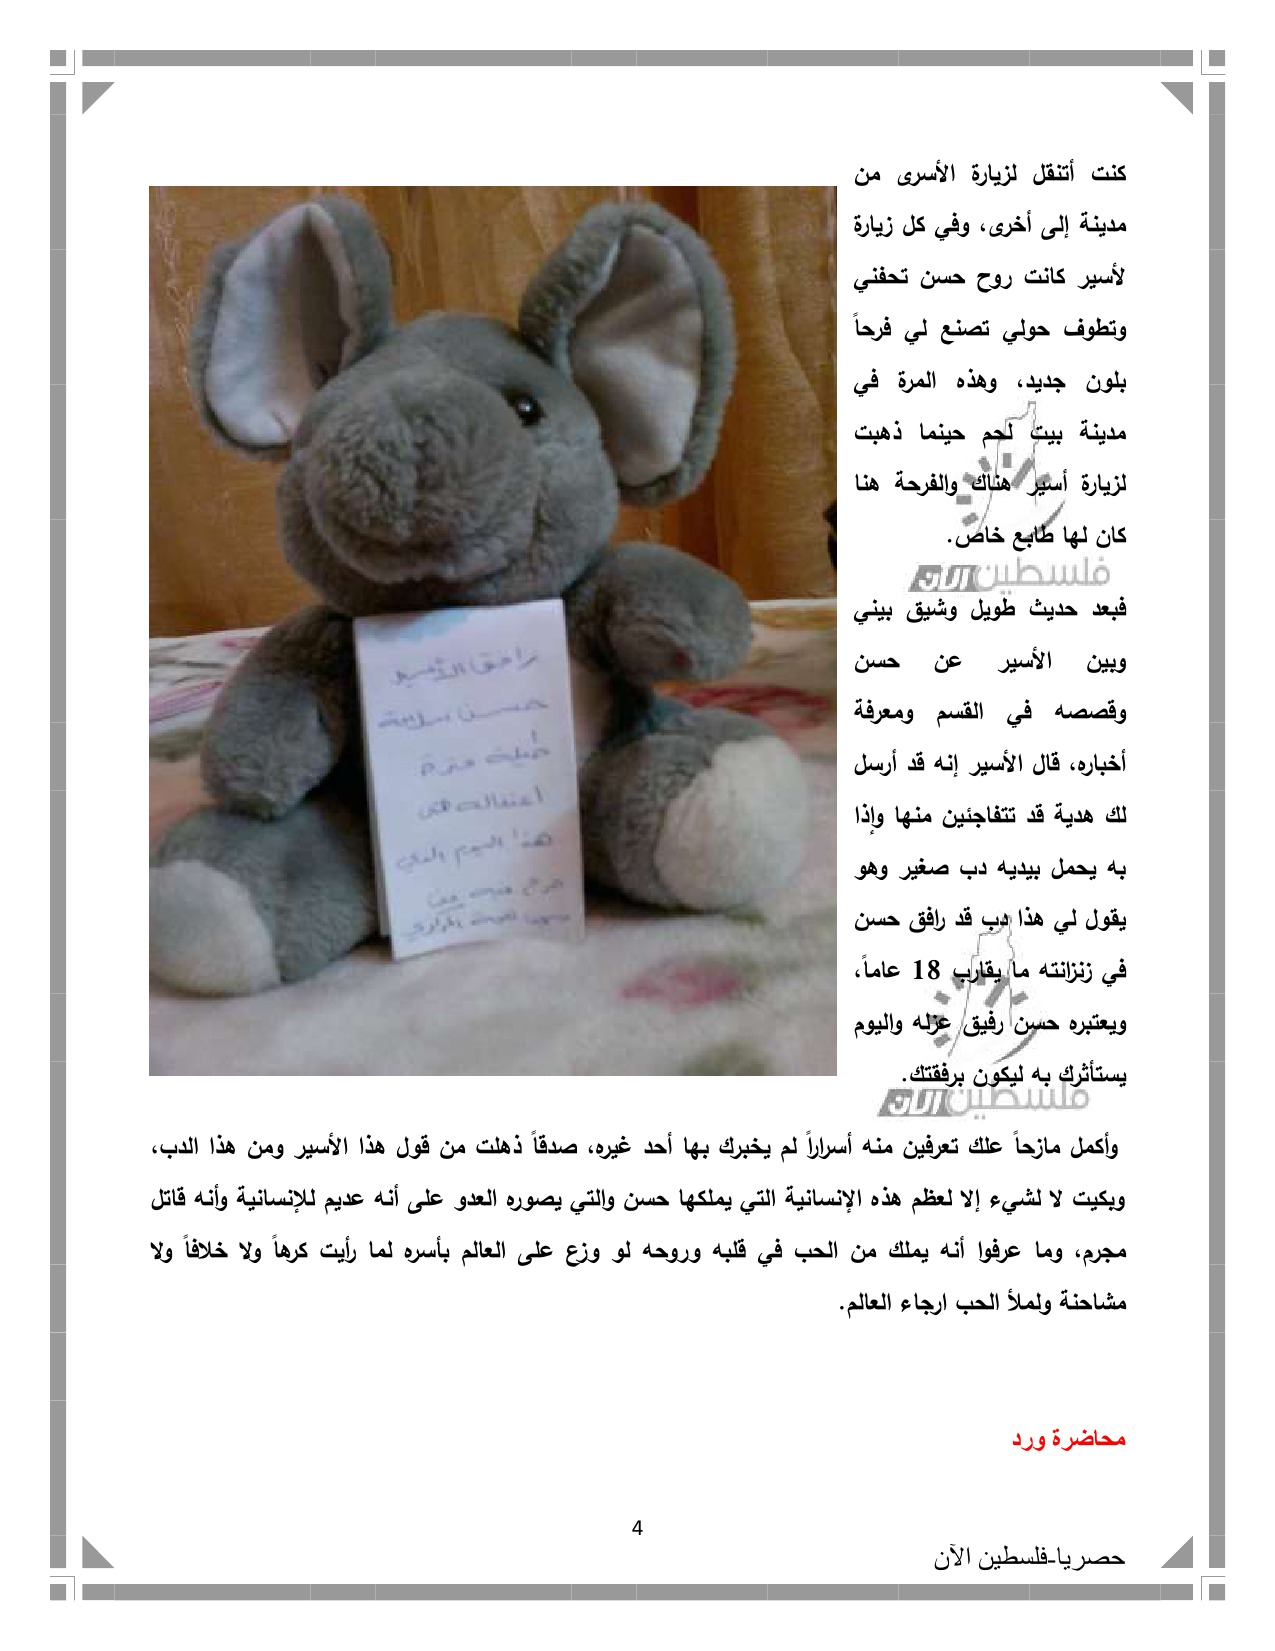 كنت أتنقل لزيارة الأسرى من
مدينة إلى أخرى، وفي كل زيارة
لأسير كانت روح حسن تحفني
وتطوف حولي تصنع لي فرحاً
بلون جديد، وهذه المرة في
مدينة بيت لحم حينما ذهبت
لزيارة أسير هناك والفرحة هنا
كان لها طابع خاص.
فلسطين الآن
فبعد حديث طويل وشيق بيني
وبين الأسير عن حسن
وقصصه في القسم ومعرفة
أخباره، قال الأسير إنه قد أرسل
لك هدية قد تتفاجئين منها وإذا
به يحمل بيديه دب صغير وهو
يقول لي هذا دب قد رافق حسن
في زنزانته ما يقارب 18 عاماً،
ويعتبره حسن رفيق عزله واليوم
يستأثرك به ليكون برفقتك.
فلسطين الآن
رافق الأسير
حسن سلامة
طيلة فترة
اعتقاله في
هذا اليوم الذي
وأكمل مازحاً علك تعرفين منه أسراراً لم يخبرك بها أحد غيره، صدقاً ذهلت من قول هذا الأسير ومن هذا الدب،
وبكيت لا لشيء إلا لعظم هذه الإنسانية التي يملكها حسن والتي يصوره العدو على أنه عديم للإنسانية وأنه قاتل
مجرم، وما عرفوا أنه يملك من الحب في قلبه وروحه لو وزع على العالم بأسره لما رأيت كرهاً ولا خلافاً ولا
مشاحنة ولملأ الحب ارجاء العالم.
محاضرة ورد
4
حصريا-فلسطين الآن